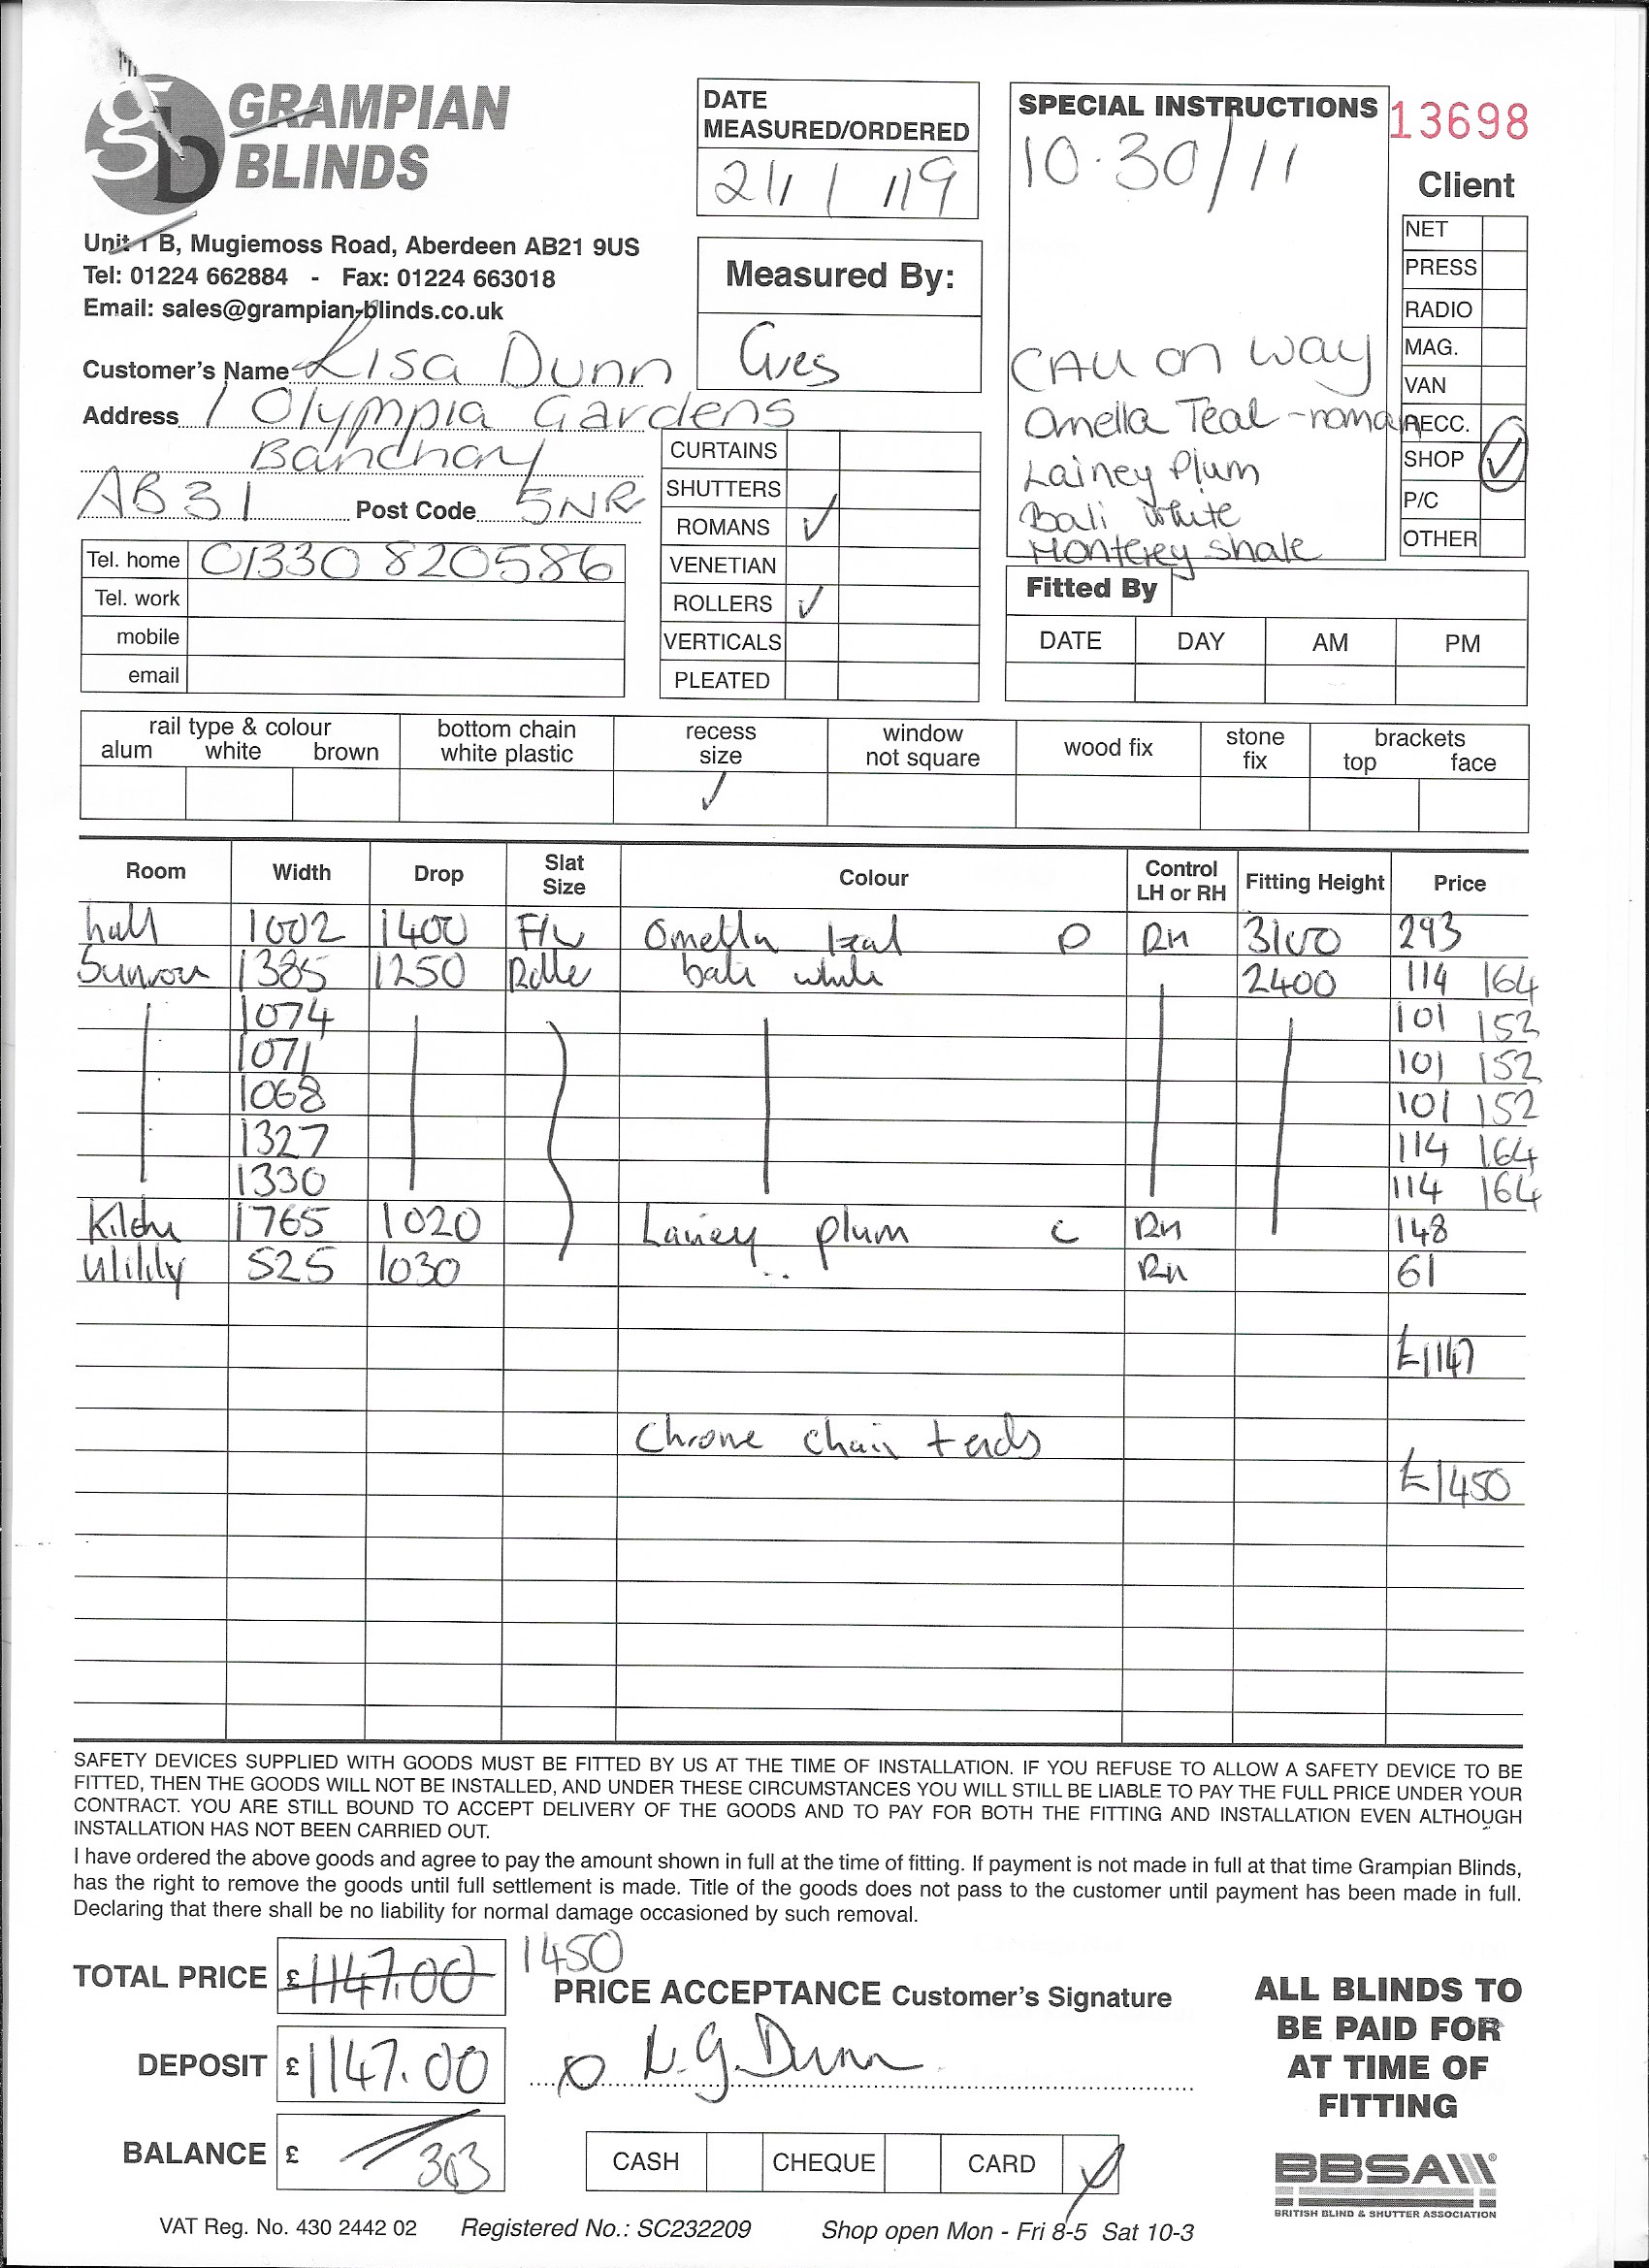 gb GRAMPIAN BLINDS
Unit 1 B, Mugiemoss Road, Aberdeen AB21 9US
Tel: 01224 662884 - Fax: 01224 663018
Email: sales@grampian-blinds.co.uk
Customer's Name Lisa Dunn
Address 1 Olympia Gardens
Banchory
AB31 Post Code 5NR
Tel. home 01330 820586
Tel. work
mobile
email
DATE
MEASURED/ORDERED
21/1/19
Measured By:
CURTAINS
SHUTTERS
ROMANS ✓
VENETIAN
ROLLERS ✓
VERTICALS
PLEATED
SPECIAL INSTRUCTIONS
10.30/11
CAll on way
Omella Teal - roman
Lainey Plum
Bali white
Monterey shale
13698
Client
NET
PRESS
RADIO
MAG.
VAN
RECC.
SHOP ✓
P/C
OTHER
Fitted By
DATE DAY AM PM
rail type & colour
alum white brown
bottom chain
white plastic
recess
size
✓
window
not square
wood fix
stone
fix
brackets
top face
Room Width Drop Slat Size Colour Control LH or RH Fitting Height Price
hall 1002 1400 Omella teal P RH 3100 293
Sunroom 1385 1250 Roller bali white 2400 114 164
1074 101 152
1071 101 152
1068 101 152
1327 114 164
1330 114 164
Kitchen 1765 1020 Lainey plum C RH 148
Utility 525 1030 RH 61
£1147
Chrome chain + ends
£1450
SAFETY DEVICES SUPPLIED WITH GOODS MUST BE FITTED BY US AT THE TIME OF INSTALLATION. IF YOU REFUSE TO ALLOW A SAFETY DEVICE TO BE
FITTED, THEN THE GOODS WILL NOT BE INSTALLED, AND UNDER THESE CIRCUMSTANCES YOU WILL STILL BE LIABLE TO PAY THE FULL PRICE UNDER YOUR
CONTRACT. YOU ARE STILL BOUND TO ACCEPT DELIVERY OF THE GOODS AND TO PAY FOR BOTH THE FITTING AND INSTALLATION EVEN ALTHOUGH
INSTALLATION HAS NOT BEEN CARRIED OUT.
I have ordered the above goods and agree to pay the amount shown in full at the time of fitting. If payment is not made in full at that time Grampian Blinds,
has the right to remove the goods until full settlement is made. Title of the goods does not pass to the customer until payment has been made in full.
Declaring that there shall be no liability for normal damage occasioned by such removal.
TOTAL PRICE £1147.00 1450
DEPOSIT £1147.00
BALANCE £ 303
PRICE ACCEPTANCE Customer's Signature
L.G.Dunn
CASH CHEQUE CARD
ALL BLINDS TO
BE PAID FOR
AT TIME OF
FITTING
BBSA
BRITISH BLIND & SHUTTER ASSOCIATION
VAT Reg. No. 430 2442 02 Registered No.: SC232209 Shop open Mon - Fri 8-5 Sat 10-3